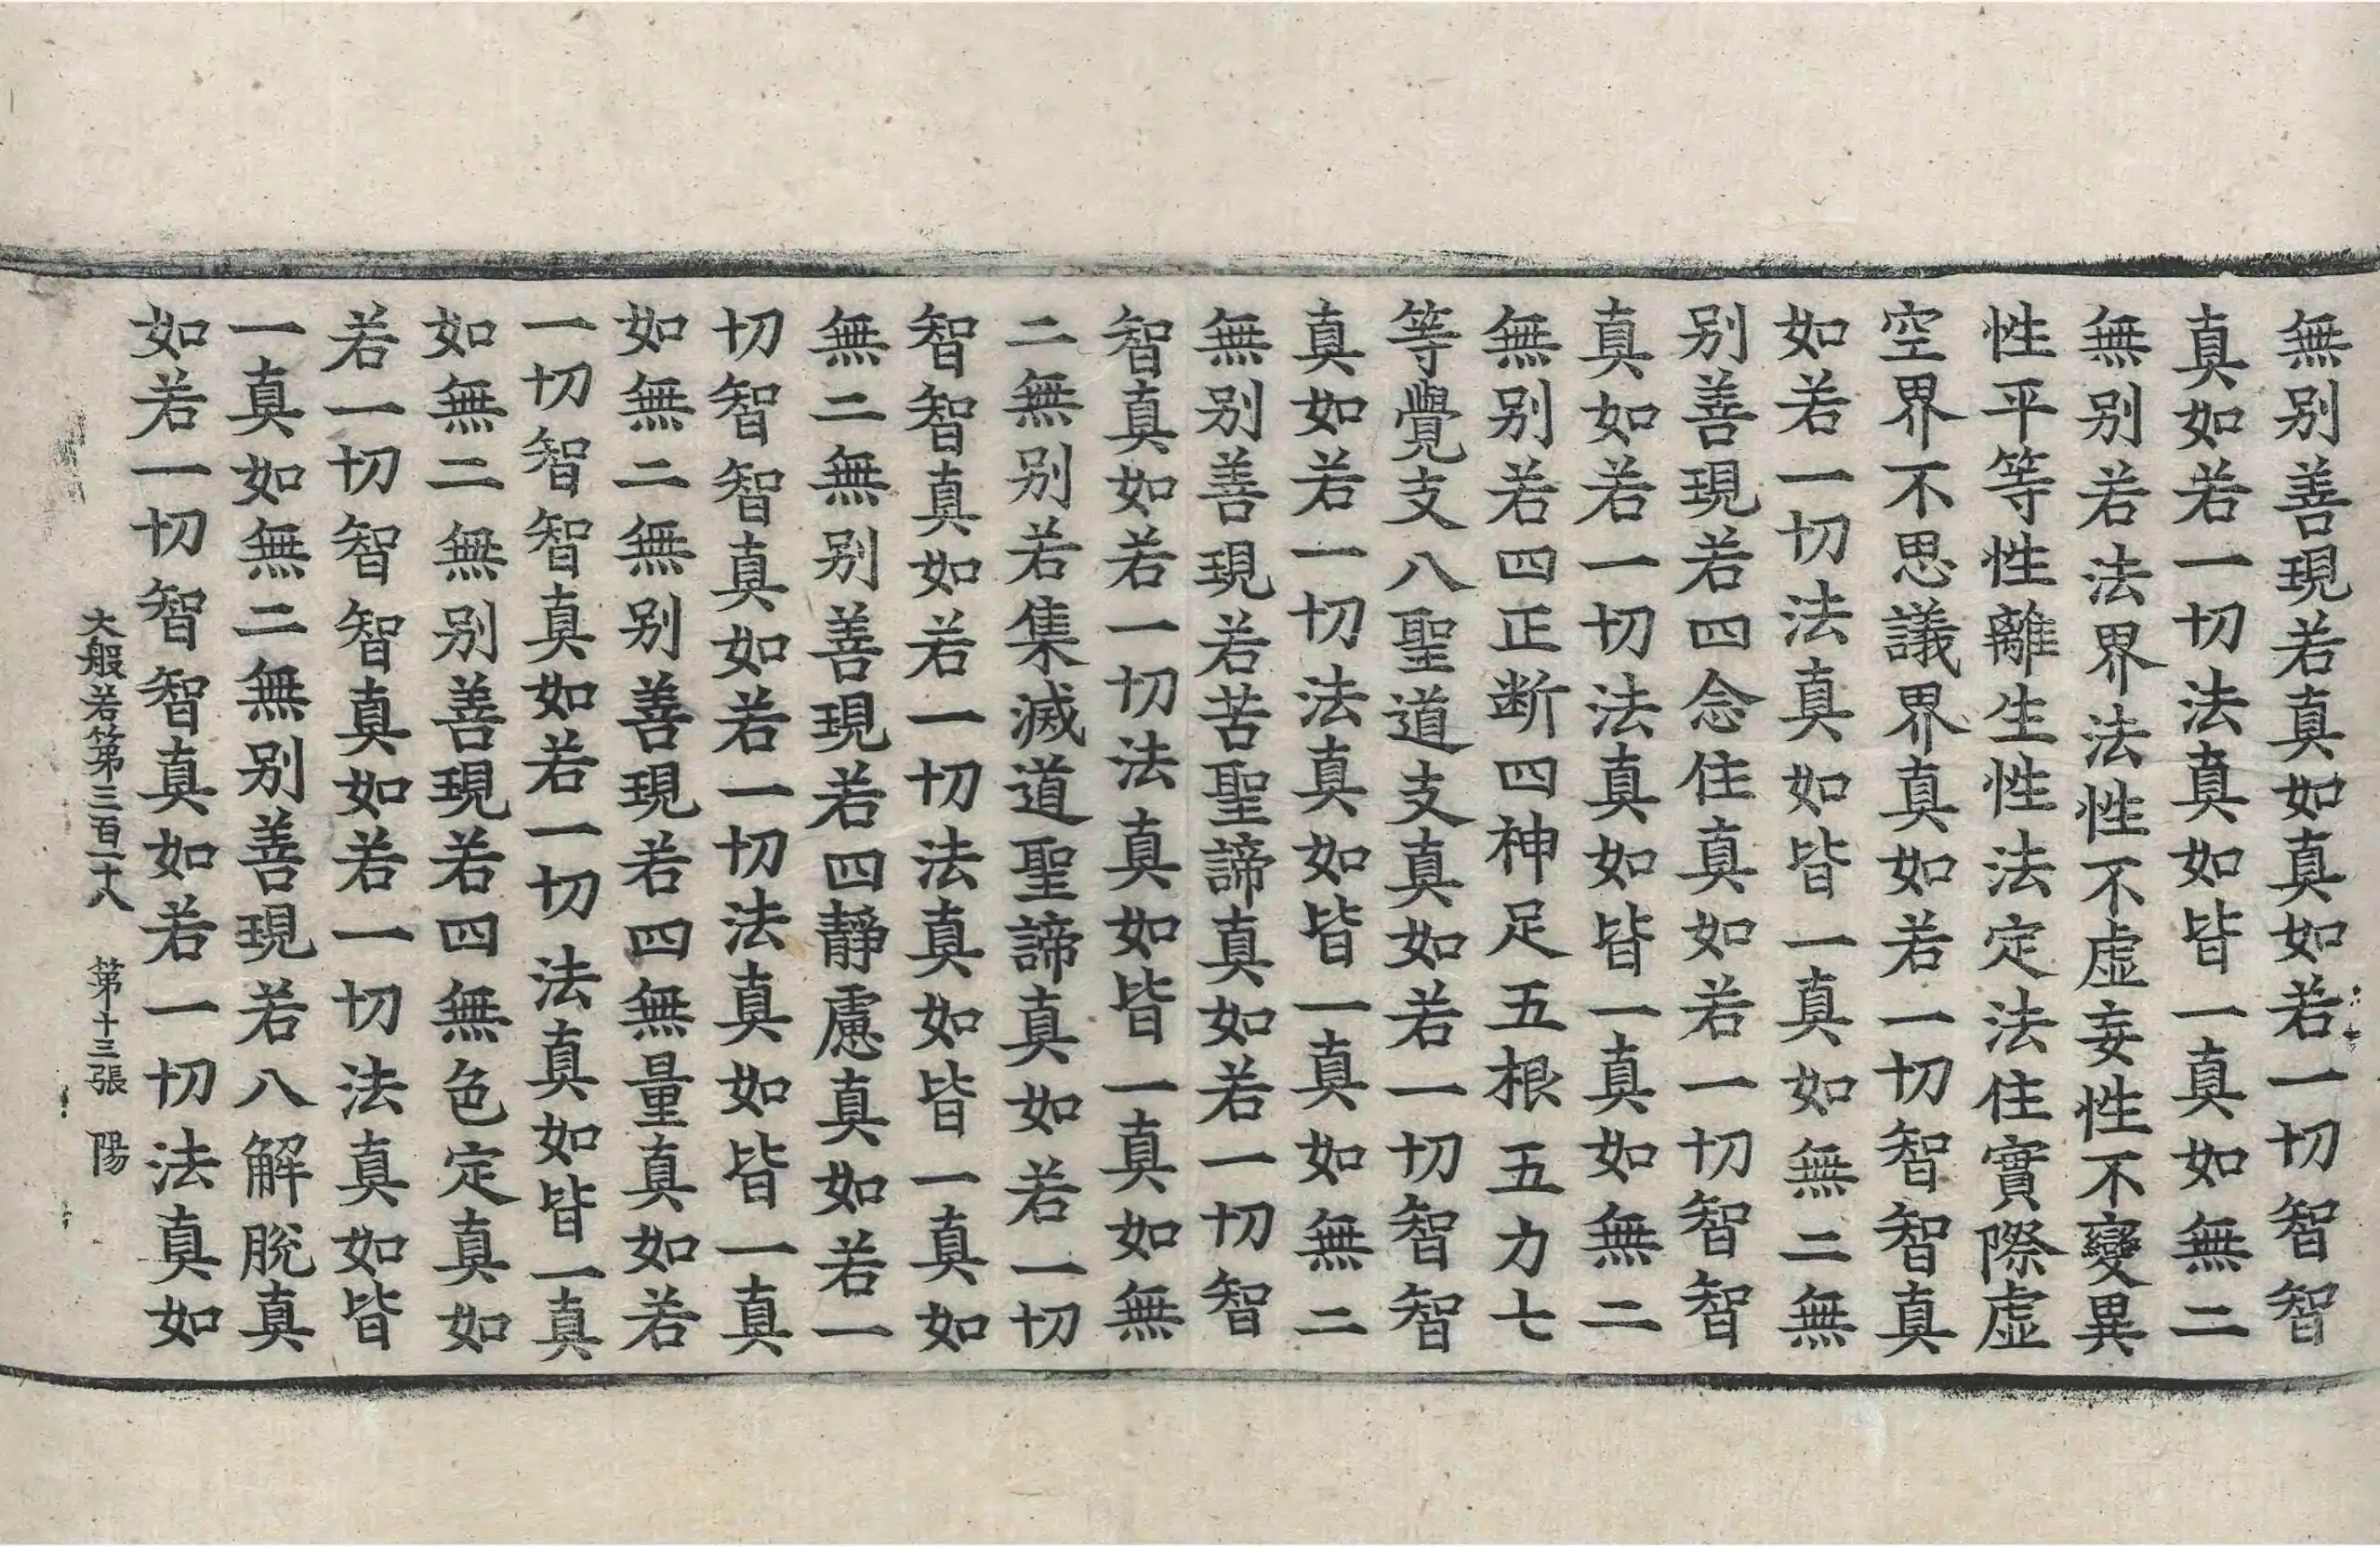 無别善現若真如真如若一切智智
真如若一切法真如皆一真如無二
無别若法界法性不虚妄性不變異
性平等性離生性法定法住實際虚
空界不思議界真如若一切智智真
如若一切法真如皆一真如無二無
别善現若四念住真如若一切智智
真如若一切法真如皆一真如無二
無别若四正断四神足五根五力七
等覺支八聖道支真如若一切智智
真如若一切法真如皆一真如無二
無别善現若苦聖諦真如若一切智
智真如若一切法真如皆一真如無
二無别若集滅道聖諦真如若一切
智智真如若一切法真如皆一真如
無二無别善現若四靜慮真如若一
切智智真如若一切法真如皆一真
如無二無别善現若四無量真如若
一切智智真如若一切法真如皆一真
如無二無别善現若四無色定真如
若一切智智真如若一切法真如皆
一真如無二無别善現若八解脫真
如若一切智智真如若一切法真如
大般若第三百一十八 第十三張 陽